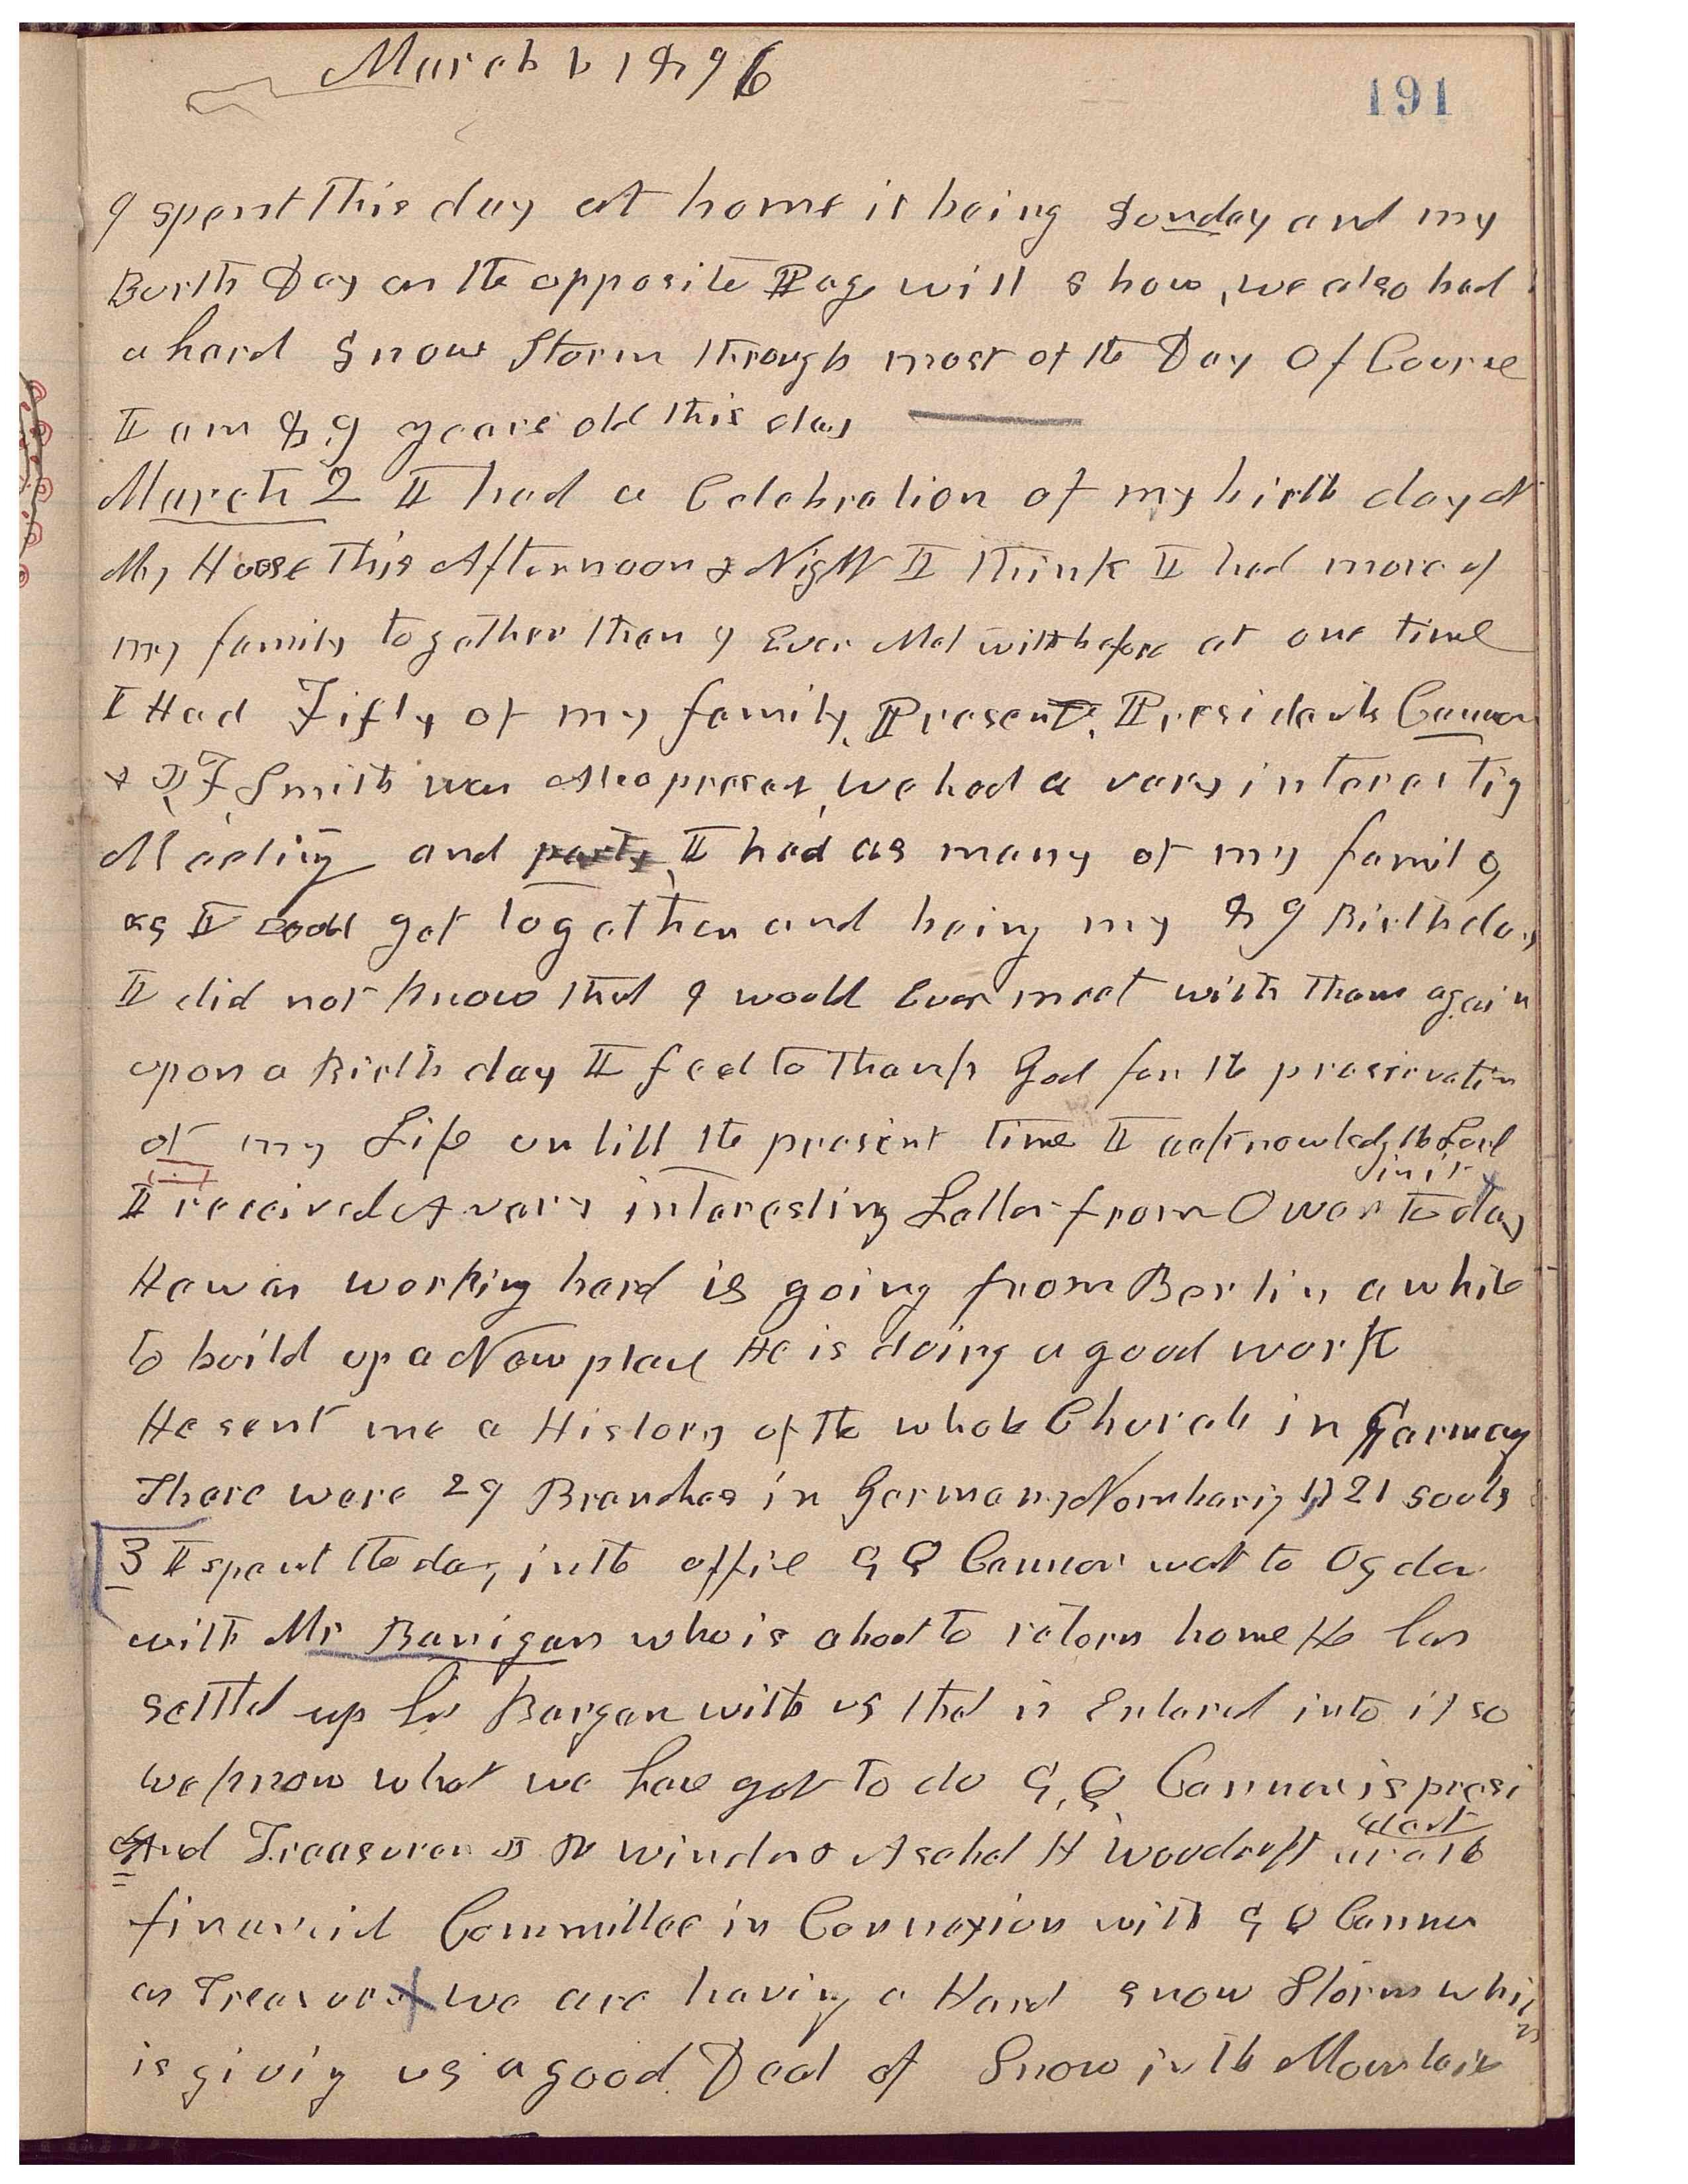 March 1 1896
191
I spent this day at home it being Sunday and my
Burth Day as the opposite Page will show, we also had
a hard Snow Storm through most of the Day Of Course
I am 89 years old this day
March 2 I had a Celebration of my birth day at
My House This Afternoon & Night I think I had more of
my family together than I Ever Met with before at one time
I Had Fifty of my family, Present, Presidents Cannon
& J, F Smith was Also present, we had a very interestig
Meeting and party, I had as many of my family
as I Could get together and being my 89 Birthday
I did not know that I would Ever meet with them again
upon a Birth day I feel to thank God for the preservation
of my Life untill the present time I acknowledg the Lord
in it
I received A very interesting Letter from Owen to day
He was working hard is going from Berlin a while
to build up a New place He is doing a good work
He sent me a History of the whole Church in Germay
There were 29 Branches in Germany Numbering 1121 souls
3 I spent the day in the office G Q Cannon wet to Ogden
with Mr Banigan who is about to return home He has
settld up his Bargan with us that is Entered into it so
we know what we have got to do G, Q, Cannon is presi
dent
And Treasurer J R Winder & Asahel H Woodruff are the
financial Committee in Connexion with G Q Cannon
as Treasurer we are having a Hard snow Storm which
is givig us a good Deal of Snow in the Mountains